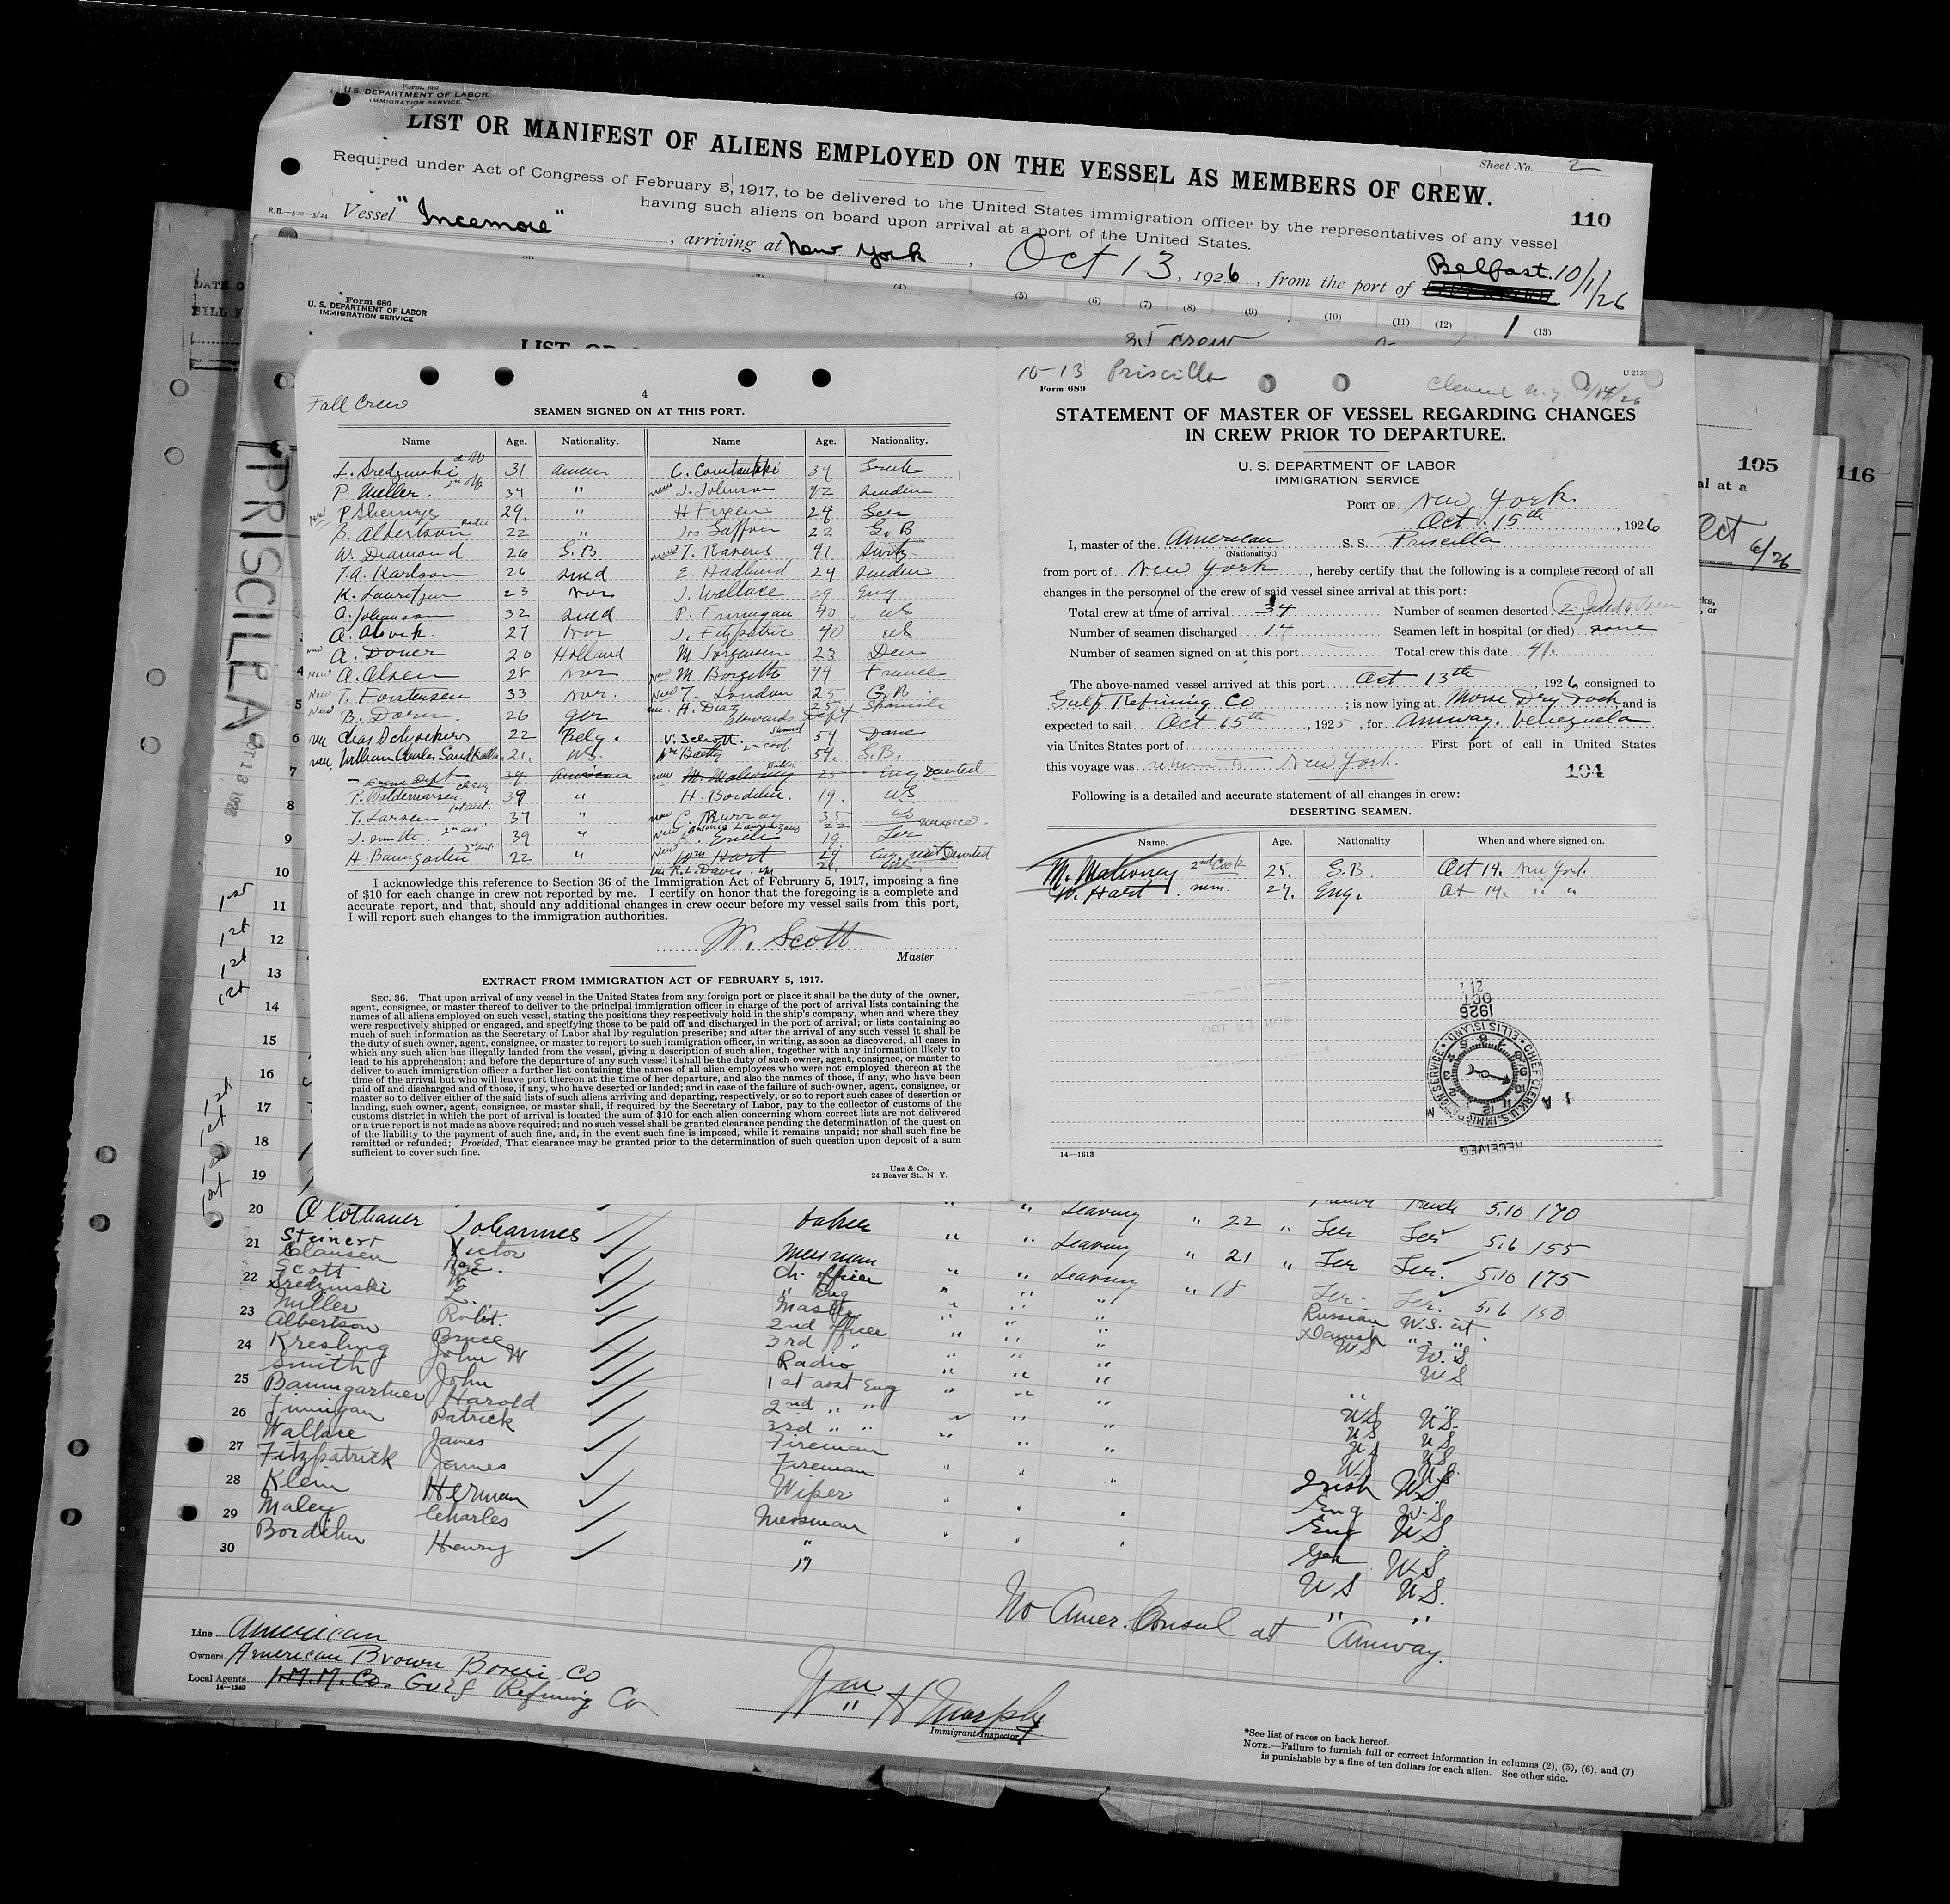 Form 680
U.S. DEPARTMENT OF LABOR
IMMIGRATION SERVICE.
LIST OR MANIFEST OF ALIENS EMPLOYED ON THE VESSEL AS MEMBERS OF CREW.
Sheet No. 2
Required under Act of Congress of February 5, 1917, to be delivered to the United States immigration officer by the representatives of any vessel
having such aliens on board upon arrival at a port of the United States.
110
Vessel "Incemore", arriving at New York, Oct 13, 1926, from the port of Belfast 10/1/26
(4) (5) (6) (7) (8) (9) (10) (11) (12) (13)
Form 680
U. S. DEPARTMENT OF LABOR
IMMIGRATION SERVICE
crew
105
116
al at a
Oct 6/26
PRISCILLA
Full Crew
4
SEAMEN SIGNED ON AT THIS PORT.
Name Age. Nationality. Name Age. Nationality.
L. Sredzinski 31 Amer
P. Miller. 2nd off 34 "
new J. Johnson 42 Sweden
29. "
B. Albertson Radio 22 "
22 G. B
W. Diamond 26 G. B
41 Switz
T.A. Karlson 26 Swed
E. Hadlund 24 Sweden
K. Lauritzen 23 Nor
J. Wallace 29 Eng
A. Johanson 32 Swed
P. Finnigan 40 US
27 Nor
J. Fitzpatric 40 US
new A. Doner 20 Holland
M Jorgensen 23 Den
new A. Olsen 28 Nor
new M Borgetto 44 France
new T. Forstensen 33 Nor.
new T. London 25 G. B.
new B. Dorn. 26 Ger
H. Diaz 25 Spanish
Stewards Dept
Chas Schroekers 22 Belg.
V. Schrott. Steward 54 Dane
21. US.
Wm Batty 2nd cook 54. G.B.
Engine Dept 34 American
new M. Mahoney 25 Eng Deserted
P. Waldemarsen ch eng 39 "
H. Bordehn. 19. US
T. Larsen 1st asst. 37 "
new C. Murray 35 US
J. Smith. 2nd as. 39 "
19. Ger
H. Baumgarten 3rd asst. 22 "
new Wm Hart 24 Eng not Deserted
R. L. Davis
I acknowledge this reference to Section 36 of the Immigration Act of February 5, 1917, imposing a fine
of $10 for each change in crew not reported by me. I certify on honor that the foregoing is a complete and
accurate report, and that, should any additional changes in crew occur before my vessel sails from this port,
I will report such changes to the immigration authorities.
W. Scott
Master
EXTRACT FROM IMMIGRATION ACT OF FEBRUARY 5, 1917.
SEC. 36. That upon arrival of any vessel in the United States from any foreign port or place it shall be the duty of the owner,
agent, consignee, or master thereof to deliver to the principal immigration officer in charge of the port of arrival lists containing the
names of all aliens employed on such vessel, stating the positions they respectively hold in the ship's company, when and where they
were respectively shipped or engaged, and specifying those to be paid off and discharged in the port of arrival; or lists containing so
much of such information as the Secretary of Labor shal lby regulation prescribe; and after the arrival of any such vessel it shall be
the duty of such owner, agent, consignee, or master to report to such immigration officer, in writing, as soon as discovered, all cases in
which any such alien has illegally landed from the vessel, giving a description of such alien, together with any information likely to
lead to his apprehension; and before the departure of any such vessel it shall be the duty of such owner, agent, consignee, or master to
deliver to such immigration officer a further list containing the names of all alien employees who were not employed thereon at the
time of the arrival but who will leave port thereon at the time of her departure, and also the names of those, if any, who have been
paid off and discharged and of those, if any, who have deserted or landed; and in case of the failure of such owner, agent, consignee, or
master so to deliver either of the said lists of such aliens arriving and departing, respectively, or so to report such cases of desertion or
landing, such owner, agent, consignee, or master shall, if required by the Secretary of Labor, pay to the collector of customs of the
customs district in which the port of arrival is located the sum of $10 for each alien concerning whom correct lists are not delivered
or a true report is not made as above required; and no such vessel shall be granted clearance pending the determination of the quest on
of the liability to the payment of such fine, and, in the event such fine is imposed, while it remains unpaid; nor shall such fine be
remitted or refunded; Provided, That clearance may be granted prior to the determination of such question upon deposit of a sum
sufficient to cover such fine.
Unz & Co.
24 Beaver St., N Y.
10-13 Priscilla
Form 689
STATEMENT OF MASTER OF VESSEL REGARDING CHANGES
IN CREW PRIOR TO DEPARTURE.
U. S. DEPARTMENT OF LABOR
IMMIGRATION SERVICE
PORT OF New York.
Oct. 15th, 1926
I, master of the American S. S. Priscilla
(Nationality.)
from port of New York, hereby certify that the following is a complete record of all
changes in the personnel of the crew of said vessel since arrival at this port:
Total crew at time of arrival 34 Number of seamen deserted 2
Number of seamen discharged 14 Seamen left in hospital (or died) none
Number of seamen signed on at this port Total crew this date 41.
The above-named vessel arrived at this port Oct 13th, 1926 consigned to
Gulf Refining Co; is now lying at Morse Dry Dock and is
expected to sail Oct 15th, 1925, for Amway. Venezuela
via Unites States port of First port of call in United States
this voyage was New York. 104
Following is a detailed and accurate statement of all changes in crew:
DESERTING SEAMEN.
Name. Age. Nationality When and where signed on.
M. Mahoney 2nd Cook 25. G.B. Oct 14. New York.
W. Hart mm. 27. Eng. Oct 14. " "
OCT 21 1926
CHIEF CLERK U.S. IMMIGRATION SERVICE ELLIS ISLAND
RECEIVED
14—1613
4
5
6
7
8
9
10
1st 11
1st 12
1st 13
1st 14
15
16
1st 17
1st 18
19
20 Johannes Leaving " 22 " 5.10 170
21 Steinert Victor Messman " " Leaving " 21 " Ger Ger 5.6 155
Clausen Ch. officer Leaving " 18 5.10 175
22 Scott W Master
Sredzinski L. 2nd officer Russian
23 Miller Robt. 3rd " Danish
Albertson Bruce Radio US U.S.
24 Kresling John W 1st asst Eng
Smith John 2nd " "
25 Baumgartner Harold 3rd " "
26 Finnigan Patrick Fireman Irish US
Wallace James Fireman Eng U.S.
27 Fitzpatrick James Wiper
28 Klein Herman Messman
29 Maley Charles " US U.S.
30 Bordehn Henry " " "
No Amer. Consul at Amway.
Line American
Owners American Brown Boveri Co
Local Agents I.M.M. Co. Gulf Refining Co
14—1240
Wm H Murphy
Immigrant Inspector
*See list of races on back hereof.
NOTE.—Failure to furnish full or correct information in columns (2), (5), (6), and (7)
is punishable by a fine of ten dollars for each alien. See other side.